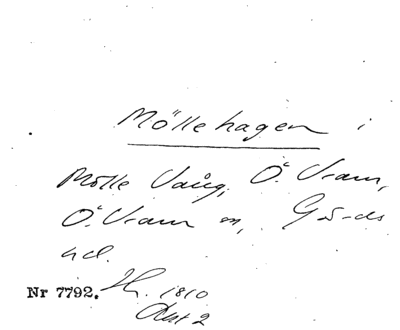 Möllehagen i
Mölle Vång, Ö. Vram,
Ö. Vram sn, Gärds
hd.
Nr 7792. 1810
Akt 2